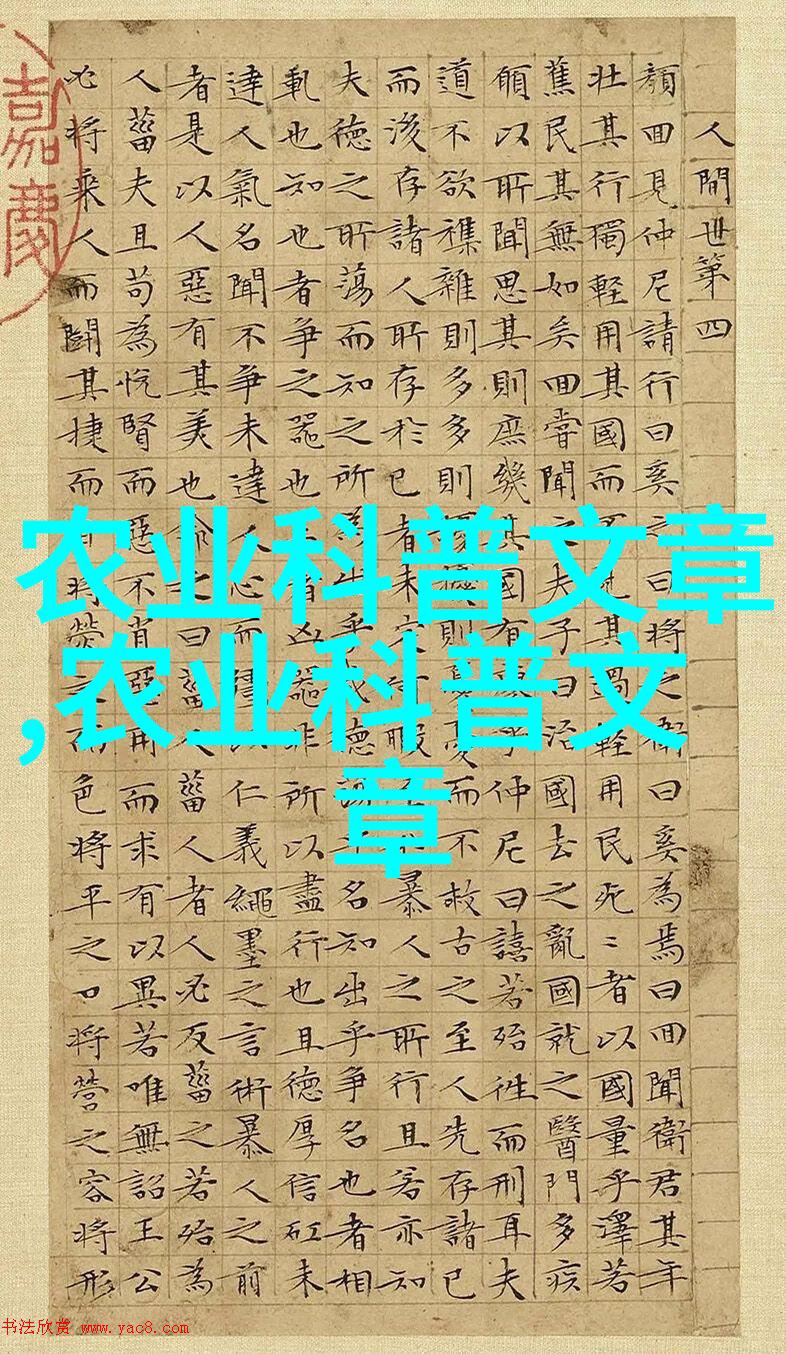 人間世第四
顏回見仲尼請行曰奚之曰將之衛曰奚為焉曰回聞衛君其年
壯其行獨輕用其國而不見其過輕用民死〻者以國量乎澤若
蕉民其無如矣回嘗聞之夫子曰治國去之亂國就之醫門多疾
願以所聞思其則庶幾其國有瘳乎仲尼曰譆若殆往而刑耳夫
道不欲襍雜則多多則擾擾則憂憂而不救古之至人先存諸己
而後存諸人所存於己者未定何暇至於暴人之所行且若亦知
夫德之所蕩而知之所為出乎哉德蕩乎名知出乎爭名也者相
軋也知也者爭之器也二者凶器非所以盡行也且德厚信矼未
達人氣名聞不爭未達人心而彊以仁義繩墨之言術暴人之前
者是以人惡有其美也命之曰菑人菑人者人必反菑之若殆為
人菑夫且苟為悅賢而惡不肖惡用而求有以異若唯無詔王公
必將乘人而鬪其捷而目將熒之而色將平之口將營之容將形
嘉慶
农业科普文章
,农业科普文
章
书法欣赏 www.yac8.com